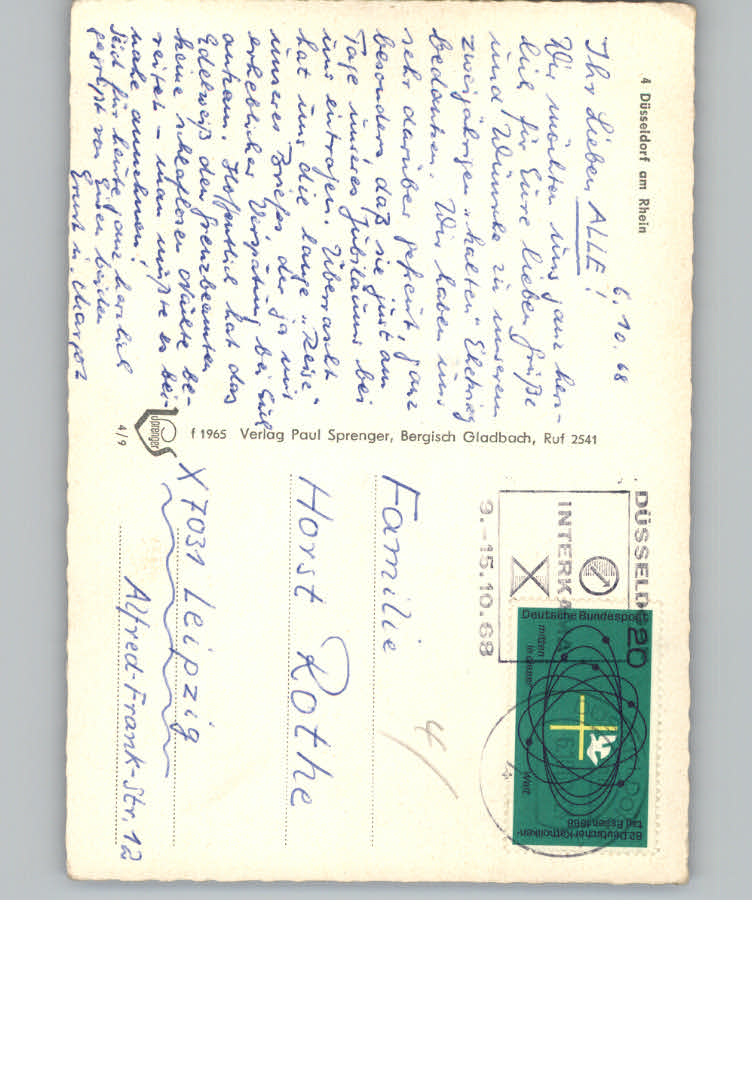 4 Düsseldorf am Rhein
6.10.68
Ihr Lieben ALLE!
Wir möchten uns ganz herz-
lich für Eure lieben Grüße
und Wünsche zu unserem
zweijährigen „halten“ Ehekrieg
bedanken. Wir haben uns
sehr darüber gefreut, ganz
besonders, daß sie just am
Tage unseres Jubiläums bei
uns eintrafen. Überrascht
hat uns die lange „Reise“
unseres Briefes der ja mit
erheblicher Verspätung bei Euch
ankam. Hoffentlich hat das
Edelweiß den Grenzbeamten
keine schlaflosen Nächte be-
reitet – man müßte es bei-
nahe annehmen!
Seid für heute ganz herzlich
gegrüßt von Euren beiden
Ernst u. Margot
f 1965 Verlag Paul Sprenger, Bergisch Gladbach, Ruf 2541
Sprenger
4/9
DÜSSELD
INTERKA
9.-15.10.68
Deutsche Bundespost
20
mitten
in dieser
Welt
82. Deutscher Katholiken-
tag Essen 1968
4
Familie
Horst Rothe
X 7031 Leipzig
Alfred-Frank-Str. 12